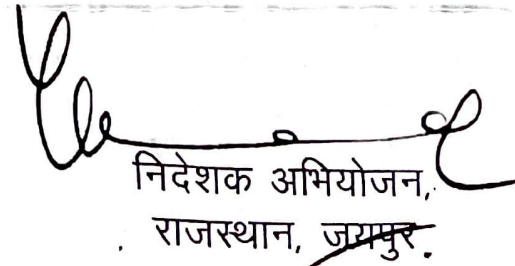 निदेशक अभियोजन,
राजस्थान, जयपुर.